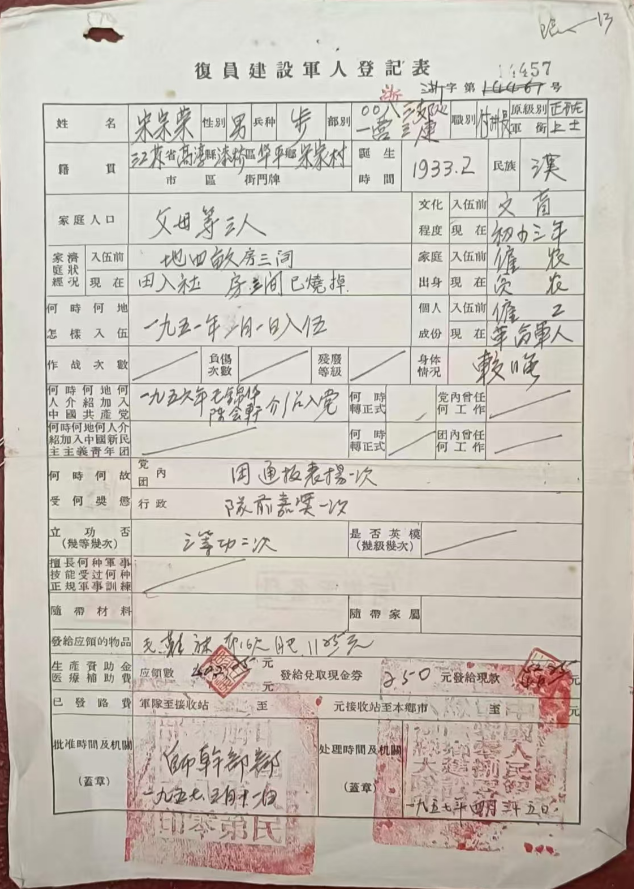 13
復員建設軍人登記表
14457
浙
浙字第14461号
姓名 宋宗荣 性别 男 兵种 步 部别 〇〇八三部队一营三連 職别 原級别軍銜 正班 上士
籍貫 江苏省高淳縣漆桥區华平鄉宋家村 市區街門牌 誕生時間 1933.2 民族 漢
家庭人口 父母等三人 文化程度 入伍前 文盲
現在 初小三年
家庭經濟狀况 入伍前 地四畝房三间 家庭出身 入伍前 僱农
現在 田入社 房三间已燒掉 現在 贫农
何時何地怎樣入伍 一九五一年 月一日入伍 個人成份 入伍前 僱工
現在 革命軍人
作战次數 負傷次數 殘廢等級 身体情况 較強
何時何地何人介紹加入中國共產党 一九五六年 介绍入党 何時轉正式 党內曾任何工作
何時何地何人介紹加入中國新民主主義青年团 何時轉正式 团內曾任何工作
何時何故受何獎懲 党团內 团通报表揚一次
行政 隊前嘉奖一次
立功否(幾等幾次) 三等功二次 是否英模(幾級幾次)
擅長何种軍事技能受过何种正規軍事訓練
隨带材料 隨帶家屬
發給应領的物品
生產資助金 医療補助費 应領數 元 元 發給兌取現金券 250 元發給現款 元
已發路費 軍隊至接收站 至 元接收站至本鄉市 至 元
批准時間及机關(蓋章) 師幹部部 一九五七.五月十一日
处理時間及机關(蓋章) 一九五七年四月二十五日